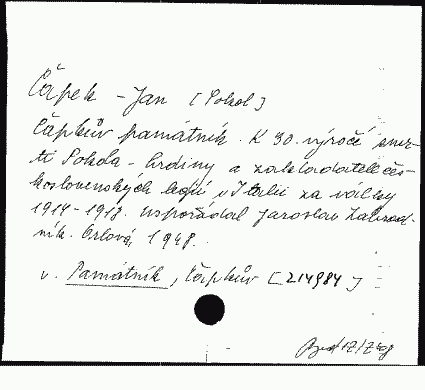 Čápek - Jan [Sokol]
Čápkův památník. K 30. výročí smr-
ti Sokola - hrdiny a zakladatele čes-
koslovenských legií v Italii za války
1914-1918. uspořádal Jaroslav Zahrad-
ník. Orlová, 1948.
v. Památník, Čápkův [214984]